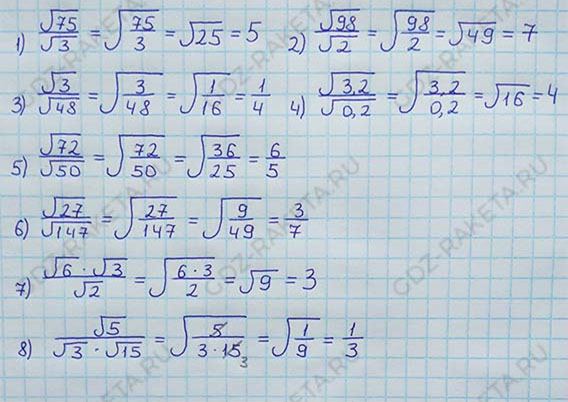 1) √75/√3 = √(75/3) = √25 = 5 2) √98/√2 = √(98/2) = √49 = 7
3) √3/√48 = √(3/48) = √(1/16) = 1/4 4) √3,2/√0,2 = √(3,2/0,2) = √16 = 4
5) √72/√50 = √(72/50) = √(36/25) = 6/5
6) √27/√147 = √(27/147) = √(9/49) = 3/7
7) (√6 · √3)/√2 = √((6 · 3)/2) = √9 = 3
8) √5/(√3 · √15) = √(5/(3 · 15 3)) = √(1/9) = 1/3
GDZ-RAKETA.RU